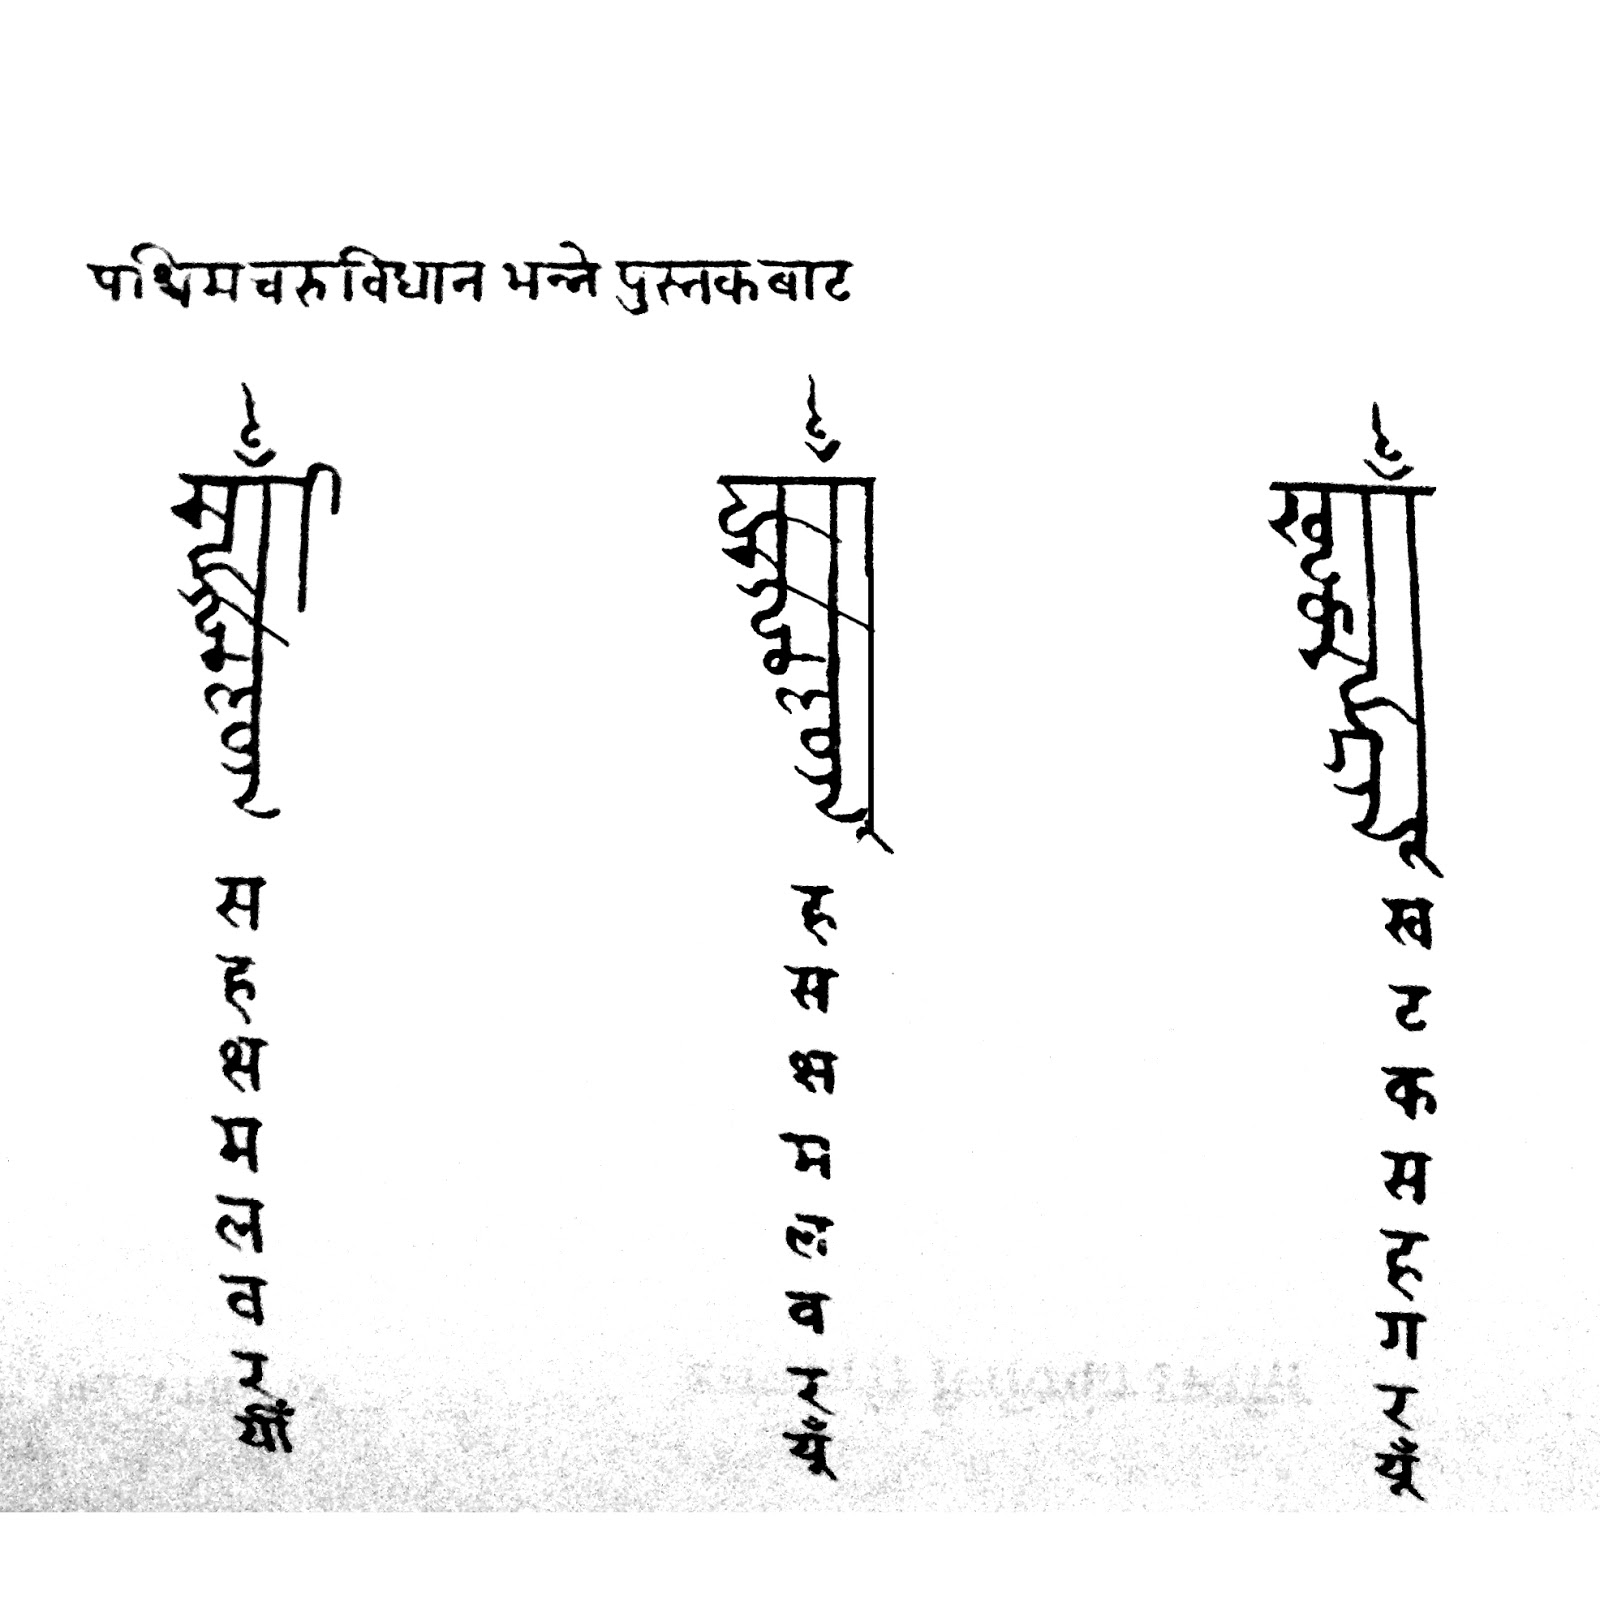 पश्चिम चरु विधान भन्ने पुस्तक बाट
स ह क्ष म ल व र यीँ
ह स क्ष म ल व र यूँ
ख ट क स ह ग र यूँ